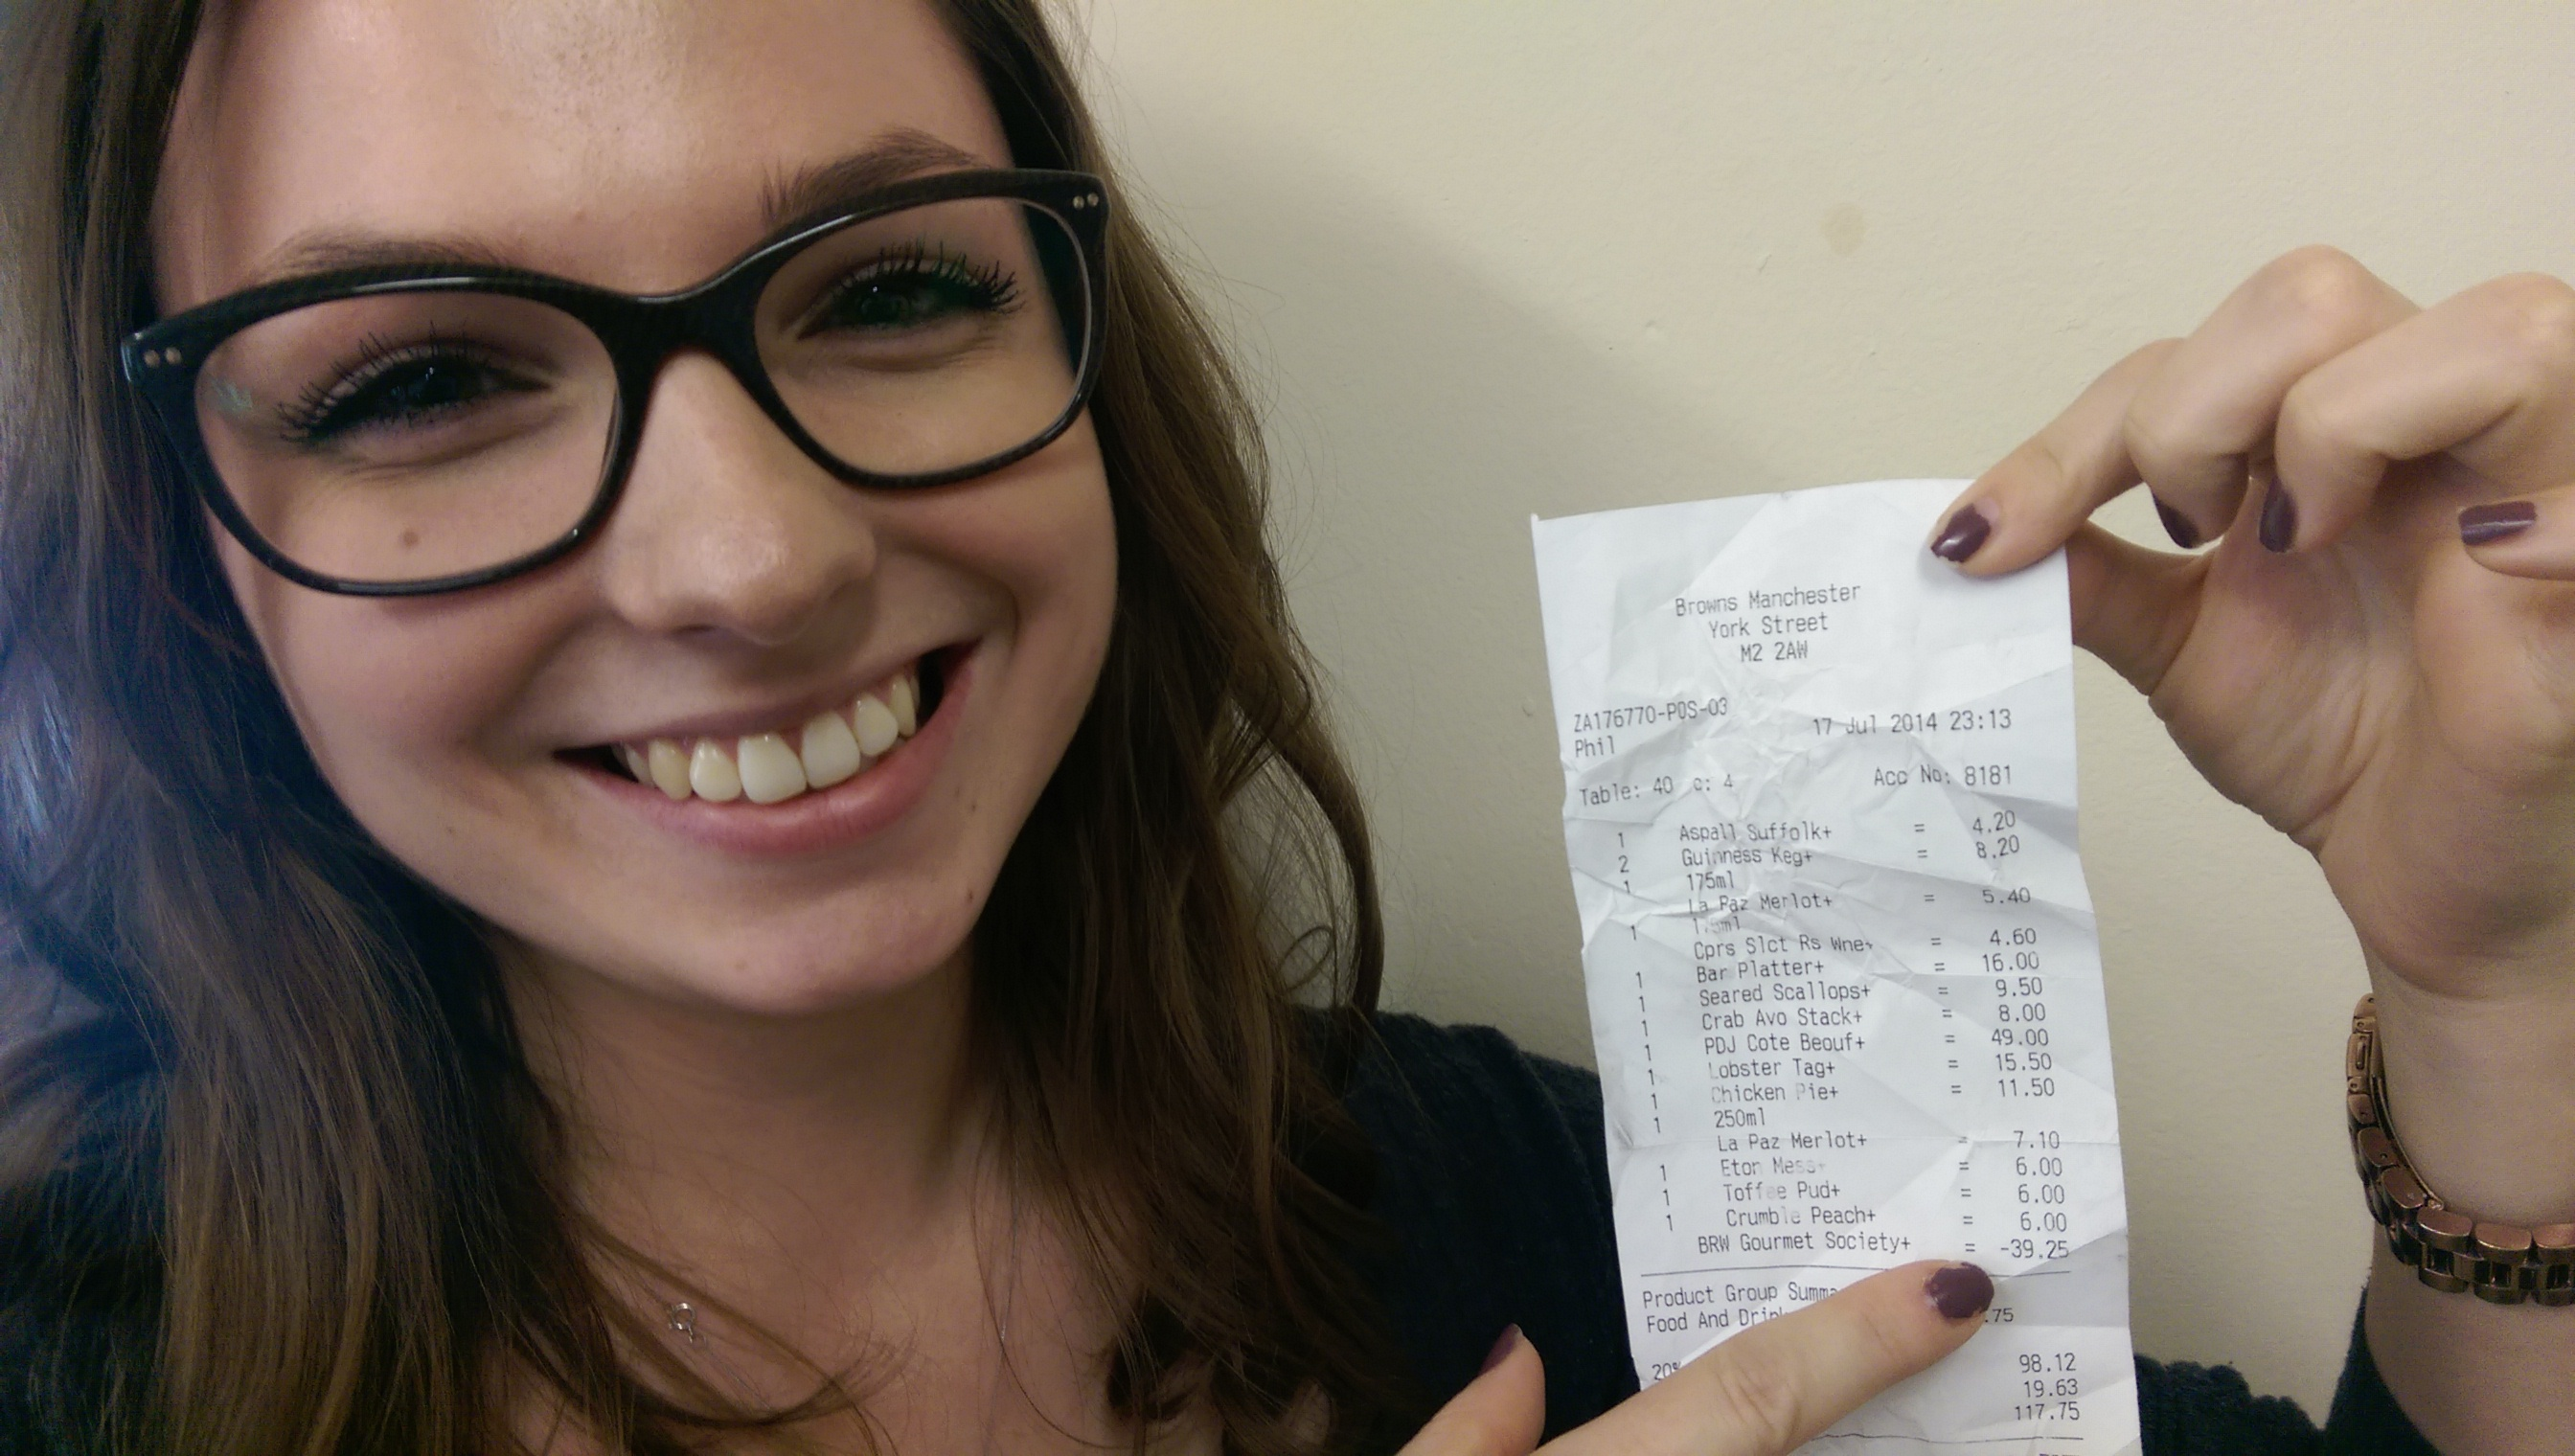 Browns Manchester
York Street
M2 2AW
ZA176770-POS-03
Phil
17 Jul 2014 23:13
Table: 40 c: 4 Acc No: 8181
1 Aspall Suffolk+ = 4.20
2 Guinness Keg+ = 8.20
1 175ml
La Paz Merlot+ = 5.40
1
Cprs Slct Rs Wne+ = 4.60
1 Bar Platter+ = 16.00
1 Seared Scallops+ = 9.50
1 Crab Avo Stack+ = 8.00
1 PDJ Cote Beouf+ = 49.00
1 Lobster Tag+ = 15.50
1 Chicken Pie+ = 11.50
1 250ml
La Paz Merlot+ = 7.10
1 Eton Mess+ = 6.00
1 Toffee Pud+ = 6.00
1 Crumble Peach+ = 6.00
BRW Gourmet Society+ = -39.25
Product Group
Food And .75
20% 98.12
19.63
117.75